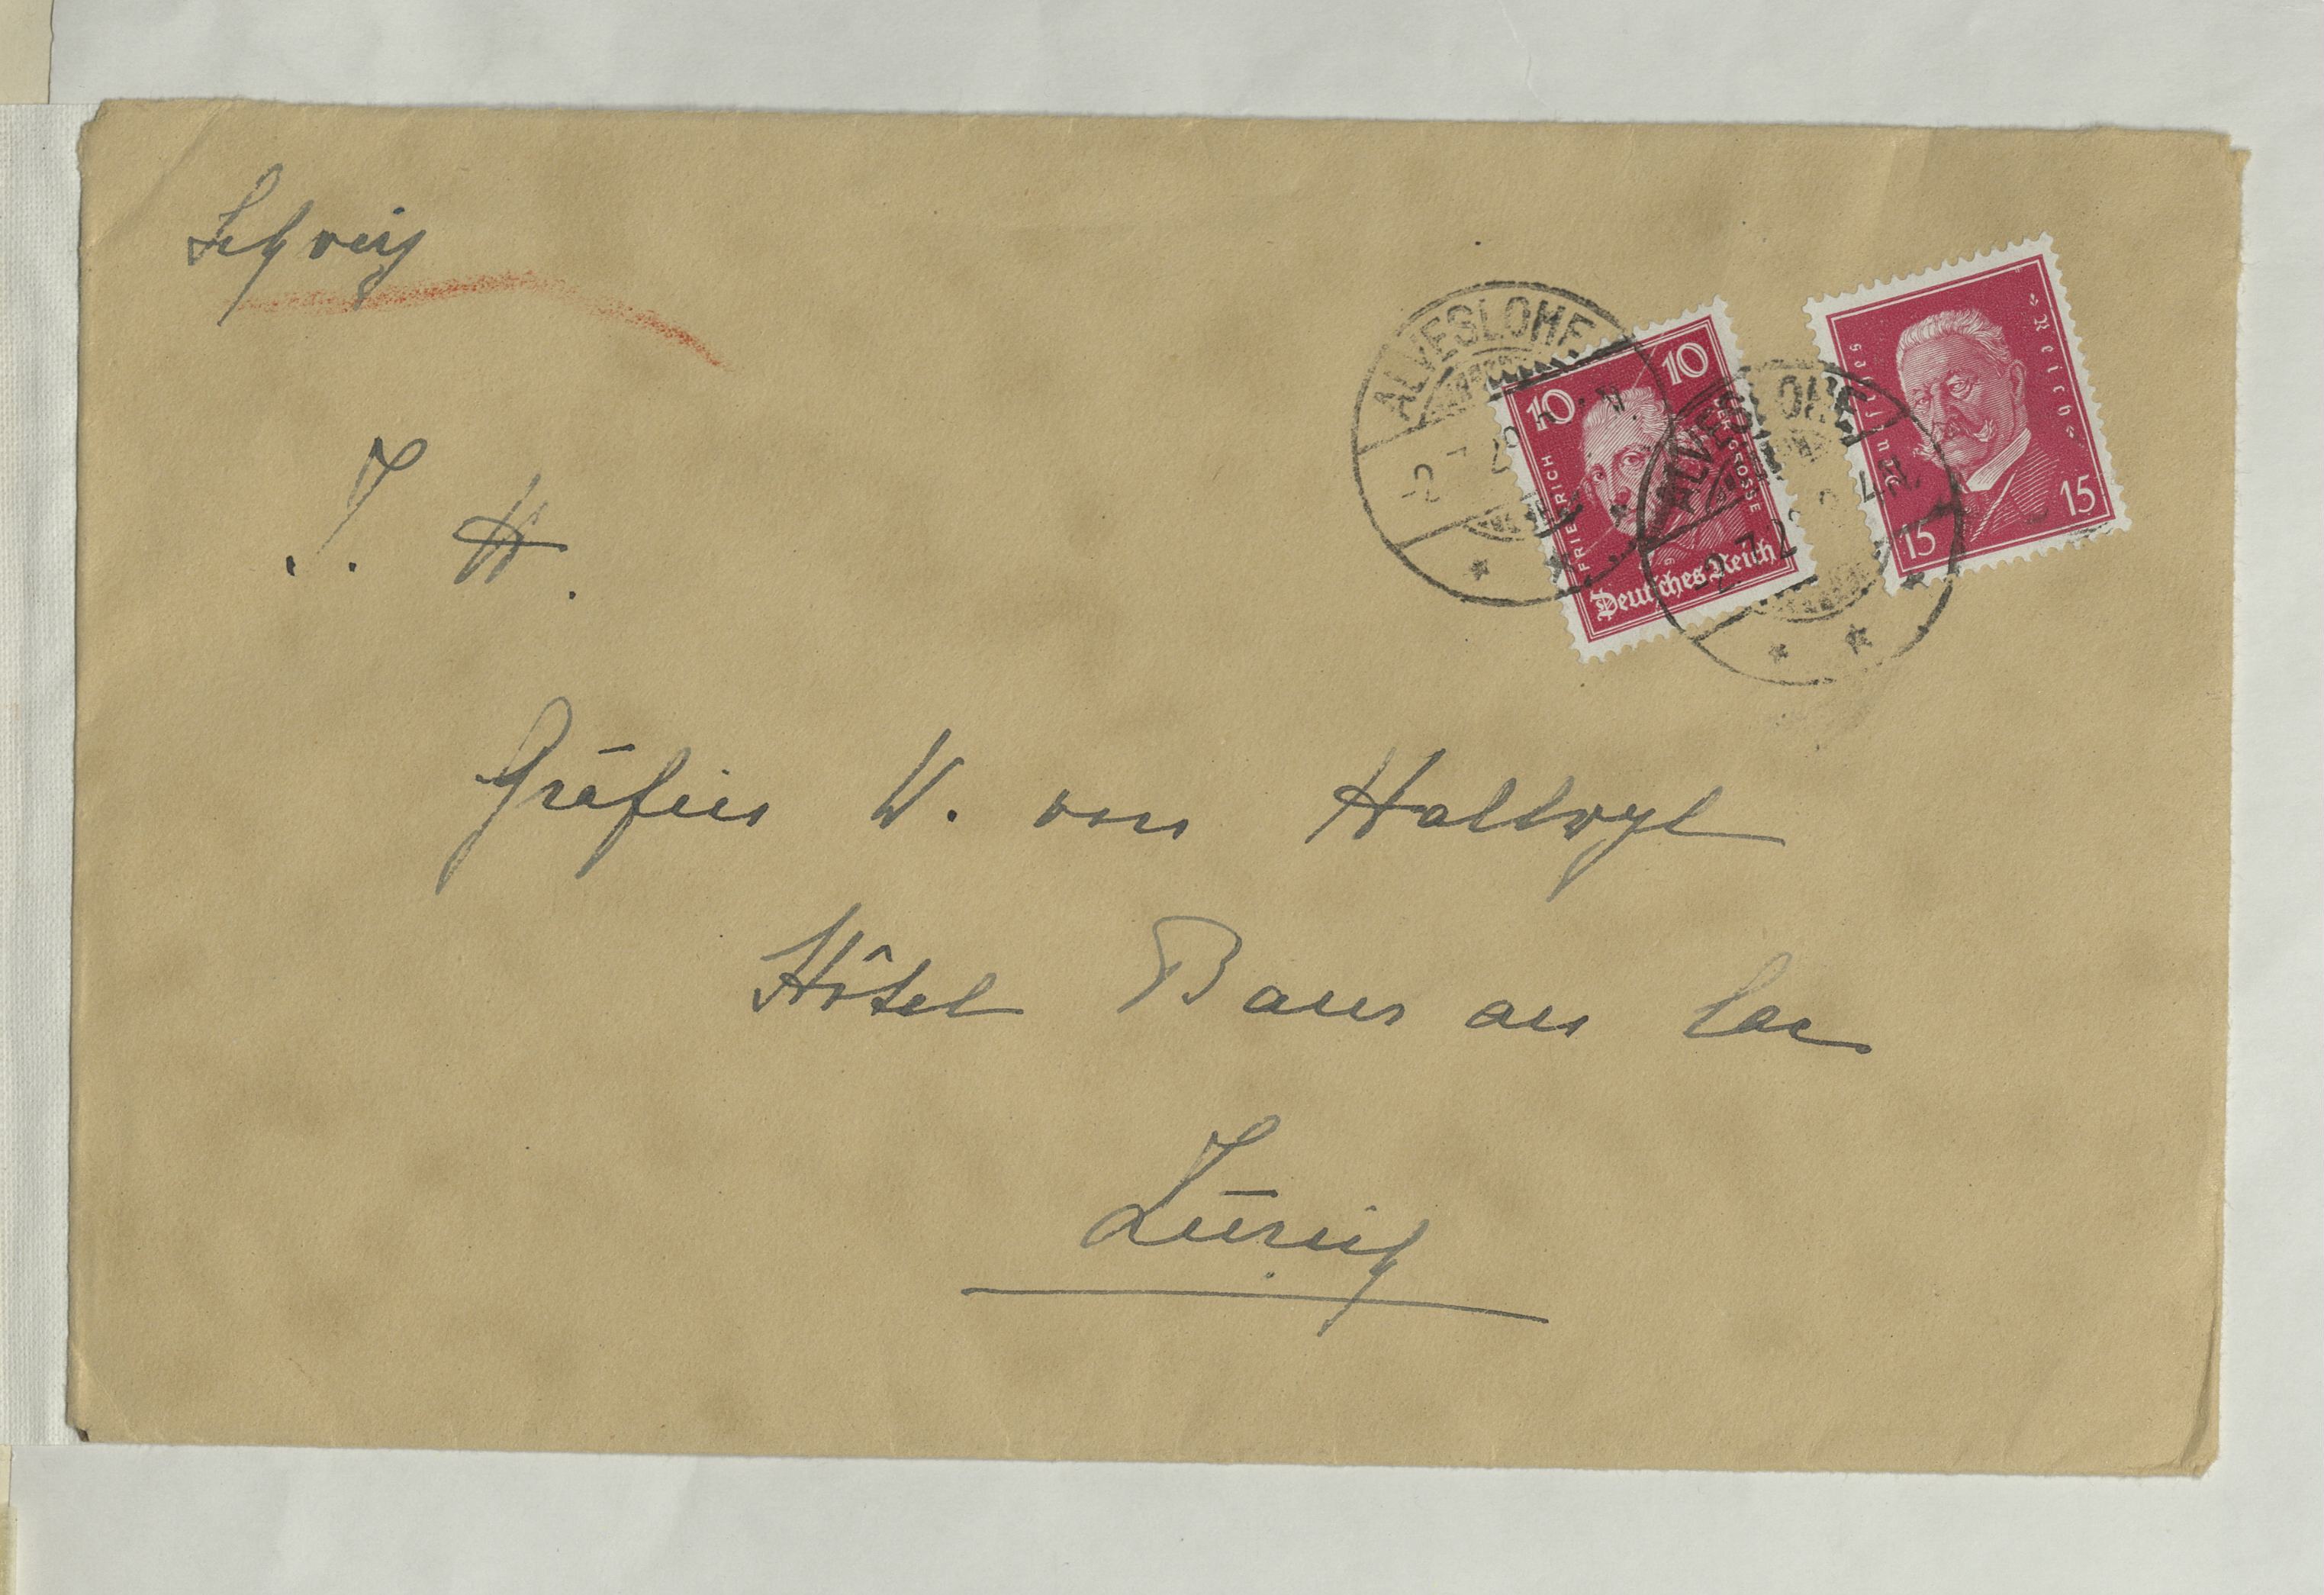 Schweiz
I. H.
Gräfin W. von Hallwyl
Hôtel Baur au lac
Zürich
ALVESLOHE
-2.7.29
ALVESLOHE
-2.7.29
10 10
FRIEDRICH DER GROSSE
Deutsches Reich
Deutsches Reich
15 15